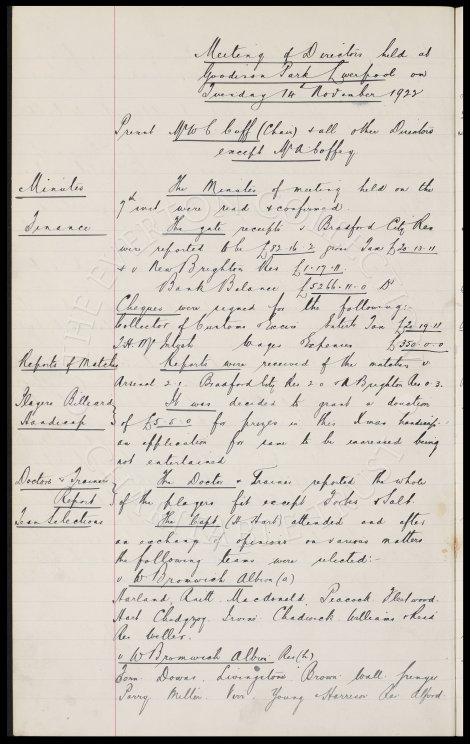 Meeting of Directors held at
Goodison Park Liverpool on
Tuesday 14th November 1922
Present Mr W C Cuff (Chair) & all other Directors
except Mr A Coffey
Minutes
The Minutes of meeting held on the
7th inst were read & confirmed.
Finance
The gate receipts v Bradford City Res
were reported to be £52.16.2 gross Tax £20.13.11
& v New Brighton Res £1.17.11.
Bank Balance £5266.11.0 Dr
Cheques were signed for the following:-
Collector of Customs & Excise Entets Tax £20.19.11
W. Expenses £350.0.0
Reports of Matches
Reports were received of the matches v
Arsenal 2.1. Bradford City Res 2.0 & N Brighton Res 0.3.
Players Billiard
Handicap
It was decided to grant a donation
of £5.5.0 for prizes in this Xmas handicap:-
an application for same to be increased being
not entertained
Doctors & Trainers
Report
The Doctor & Trainer reported the whole
of the players fit except Forbes & Salt.
Team Selections
The Capt (H Hart) attended and after
an exchange of opinions on various matters
the following teams were selected:-
v W Bromwich Albion (a)
Harland. Raitt. Macdonald. Peacock. Fleetwood.
Hart Chedgzoy. Irvine Chadwick. Williams & Reid
Res Weller.
v W Bromwich Albion Res (h)
Fern. Downs. Livingstone Brown. Wall. Grenyer
Parry Miller. Virr. Young & Harrison Res Alford